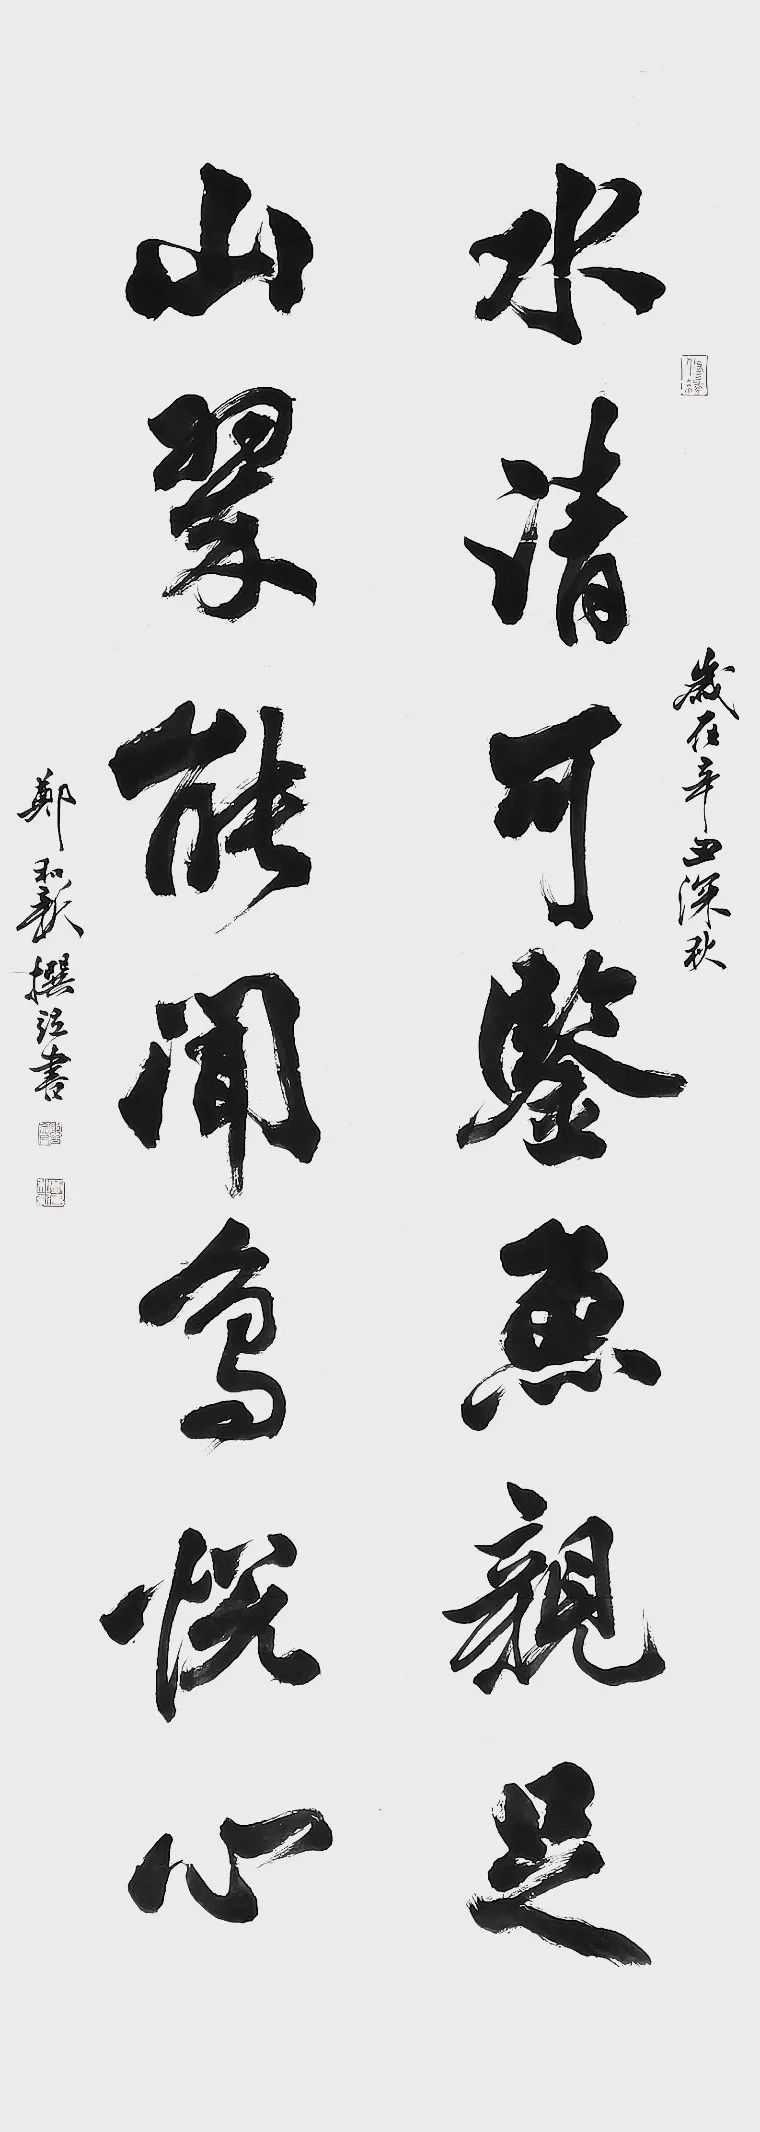 歲在辛丑深秋
水清可鑒魚親足
山翠能聞鳥悅心
鄭和新撰註書